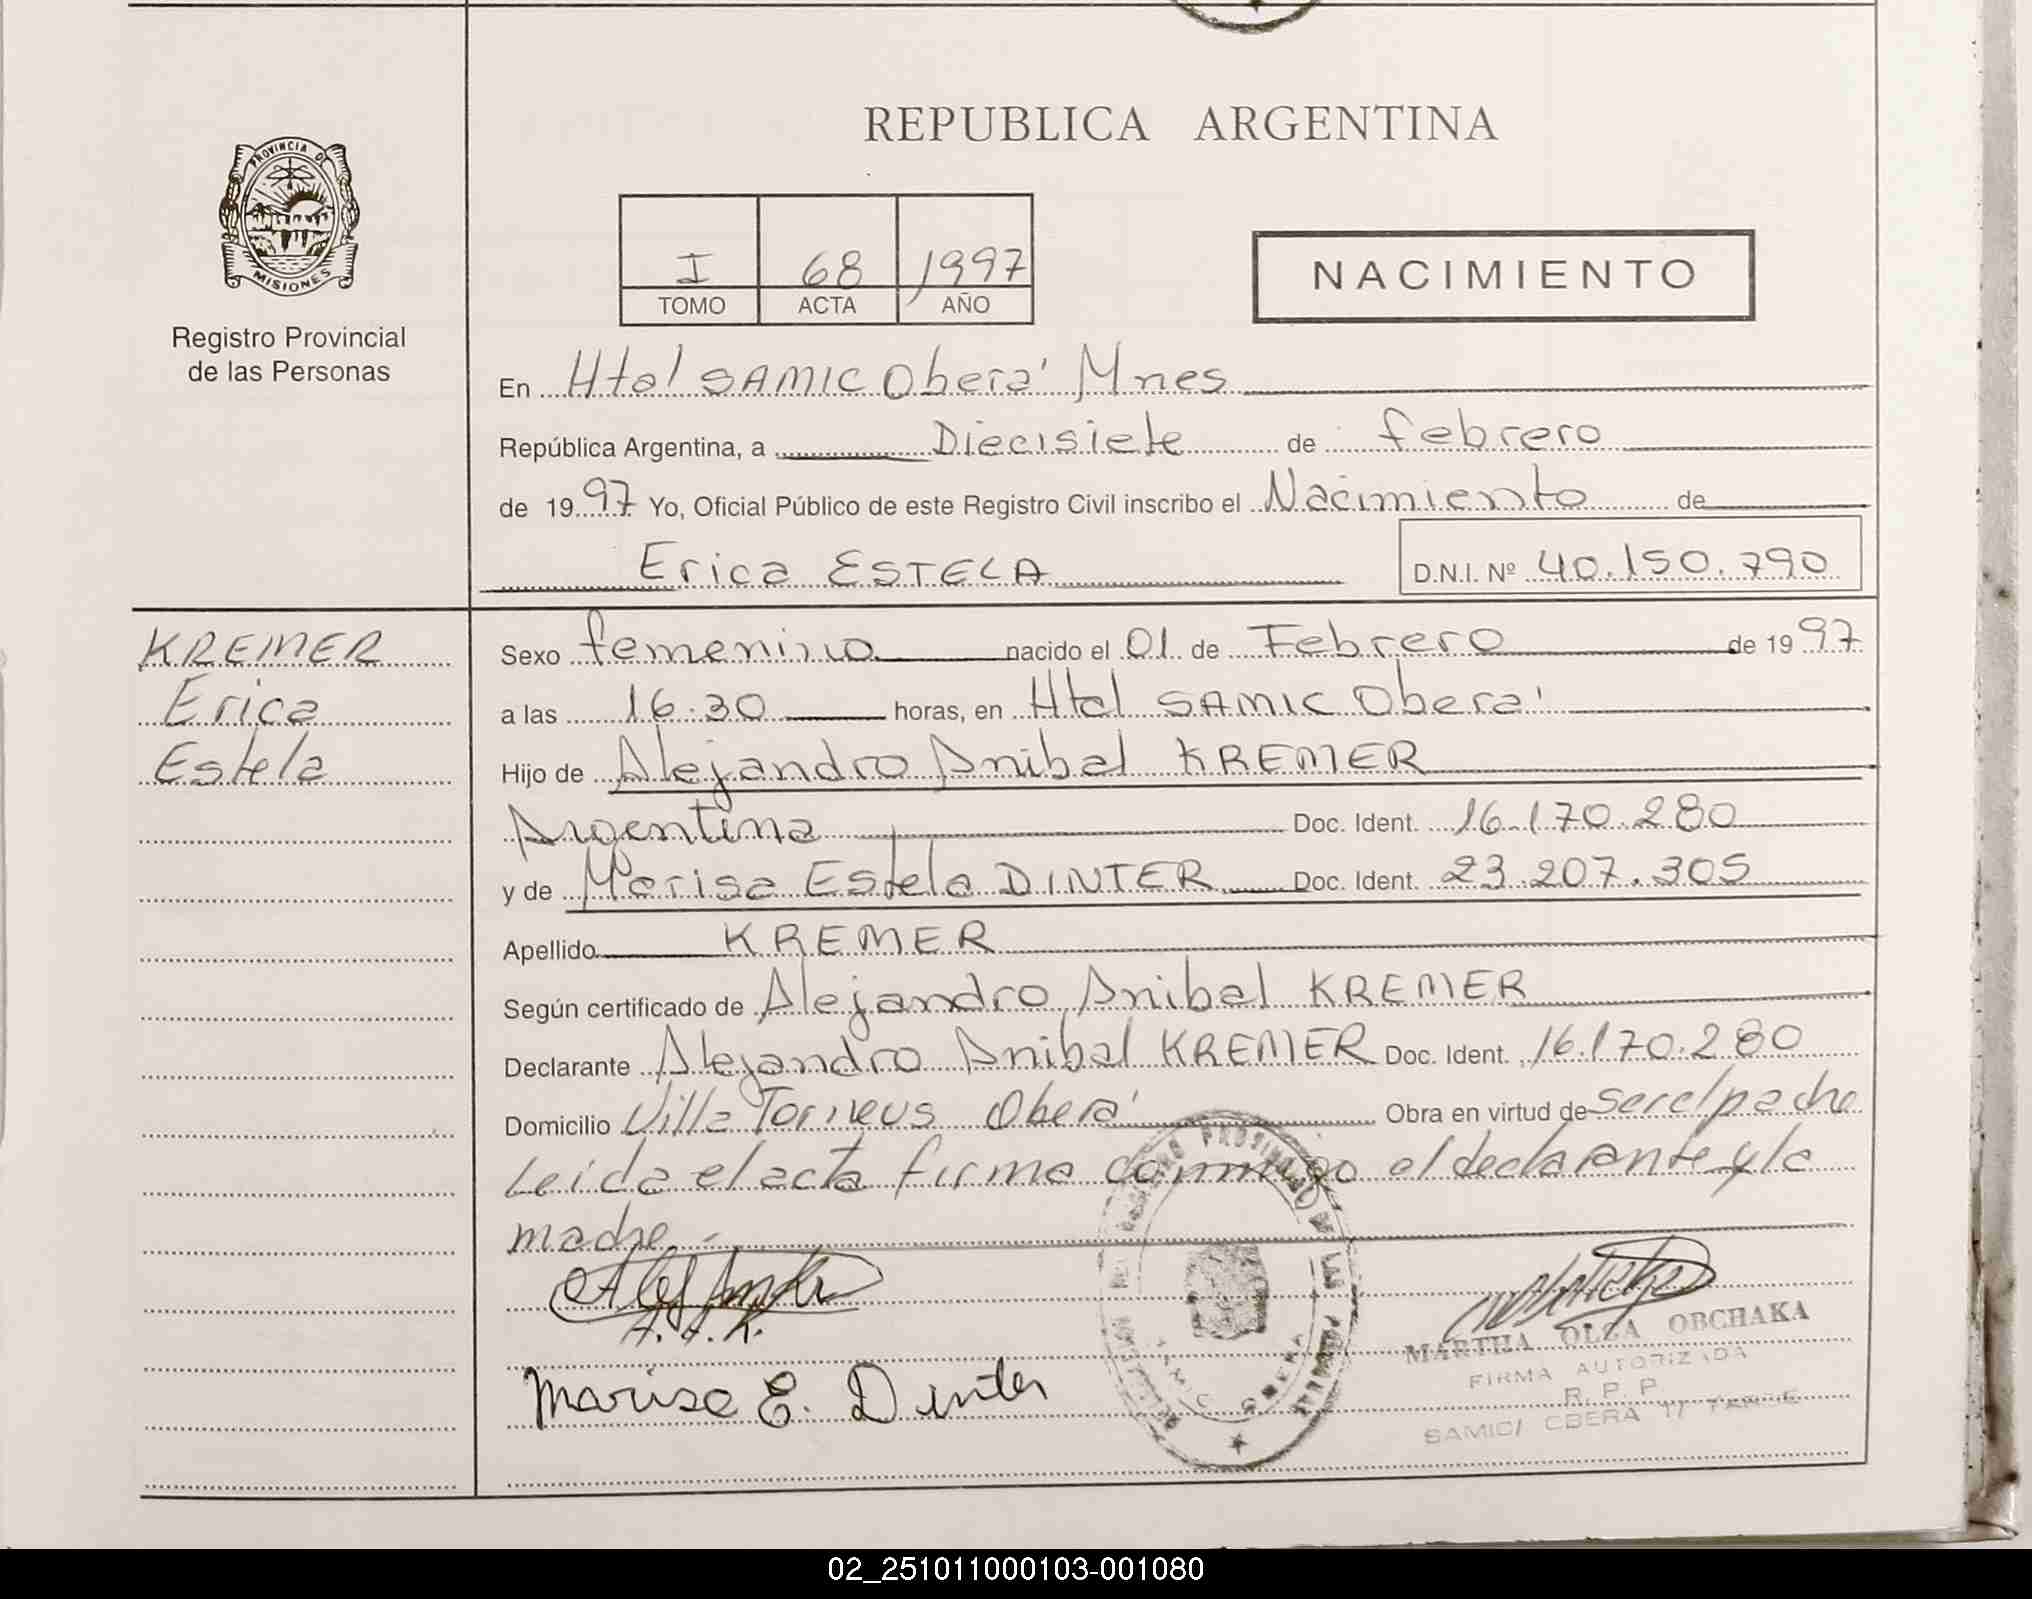 REPUBLICA ARGENTINA
PROVINCIA D
MISIONES
Registro Provincial
de las Personas
I 68 1997
TOMO ACTA AÑO
NACIMIENTO
En Htal SAMIC Oberá Mnes
República Argentina, a Diecisiete de febrero
de 1997 Yo, Oficial Público de este Registro Civil inscribo el Nacimiento de
Erica ESTELA D.N.I. Nº 40.150.790
KREMER
Erica
Estela
Sexo femenino nacido el 01 de Febrero de 1997
a las 16.30 horas, en Htal SAMIC Oberá
Hijo de Alejandro Anibal KREMER
Argentina Doc. Ident. 16.170.280
y de Marisa Estela DINTER Doc. Ident. 23.207.305
Apellido KREMER
Según certificado de Alejandro Anibal KREMER
Declarante Alejandro Anibal KREMER Doc. Ident. 16.170.280
Domicilio Villa Torneus Oberá Obra en virtud de ser el padre
Leida el acta firma conmigo el declarante y la
madre.-
A. A. K.
Marisa E. Dinter
MARTHA OLGA OBCHAKA
FIRMA AUTORIZADA
R. P. P.
SAMIC/ OBERA
02_251011000103-001080